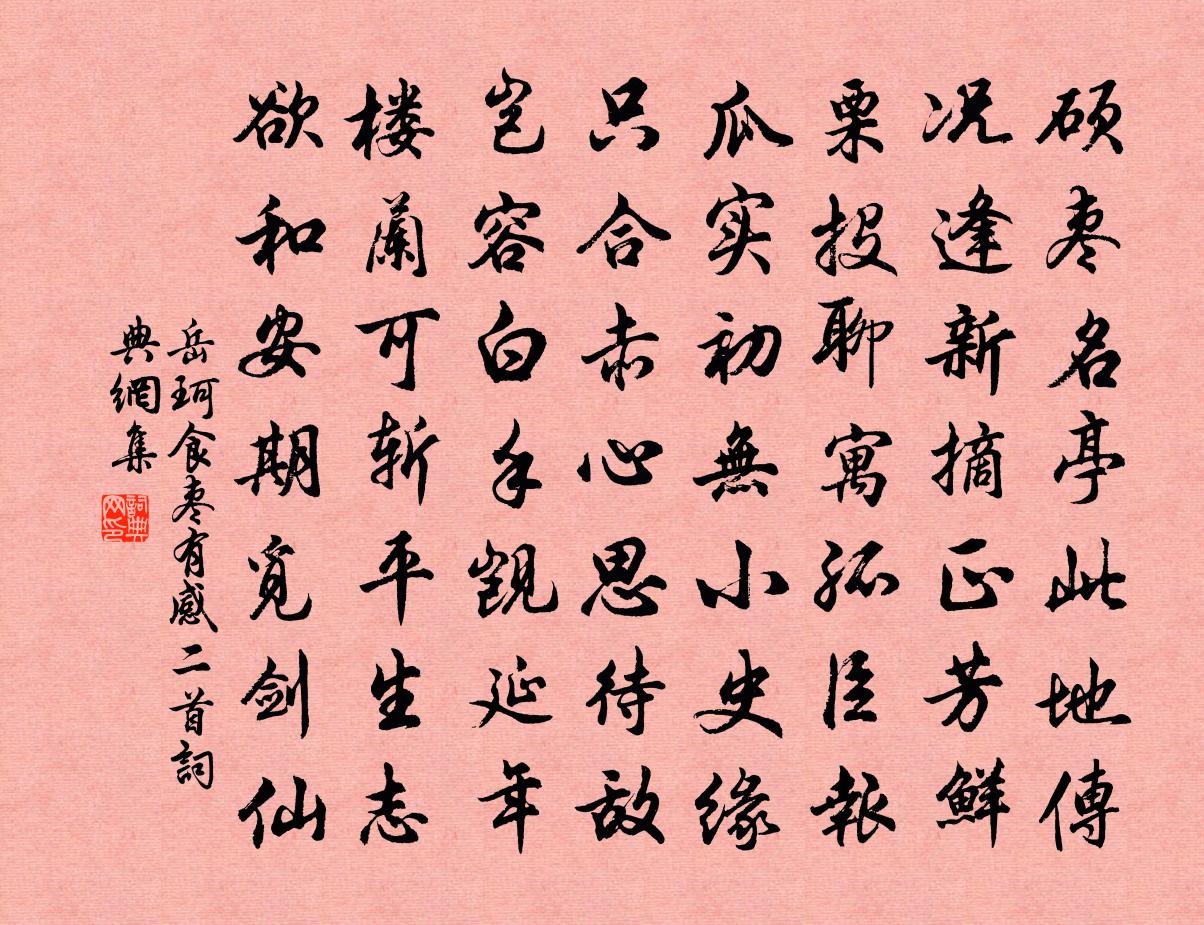 硕枣名亭此地傳
况逢新摘正芳鮮
栗投聊寓孤臣報
瓜实初無小史緣
只合赤心思待敌
岂容白手觊延年
楼蘭可斬平生志
欲和安期觅劍仙
岳珂食枣有感二首詞
典網集
詞典
网印